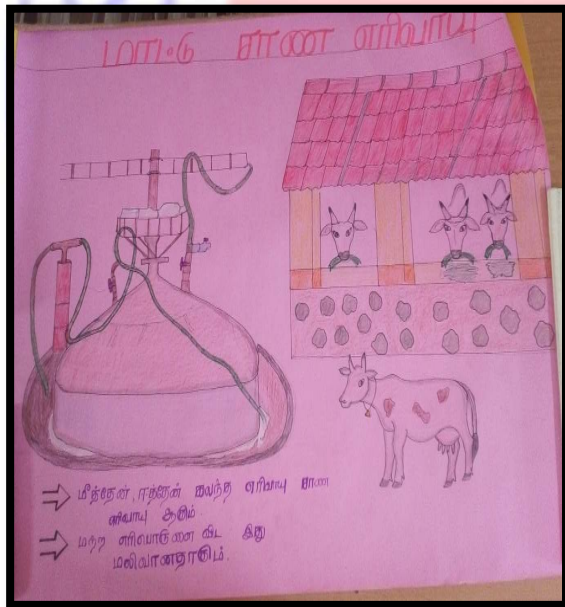 மாட்டு சாண எரிவாயு
மீத்தேன், ஈத்தேன் கலந்த எரிவாயு சாண
எரிவாயு ஆகும்.
மற்ற எரிபொருளை விட இது
மலிவானதாகும்.